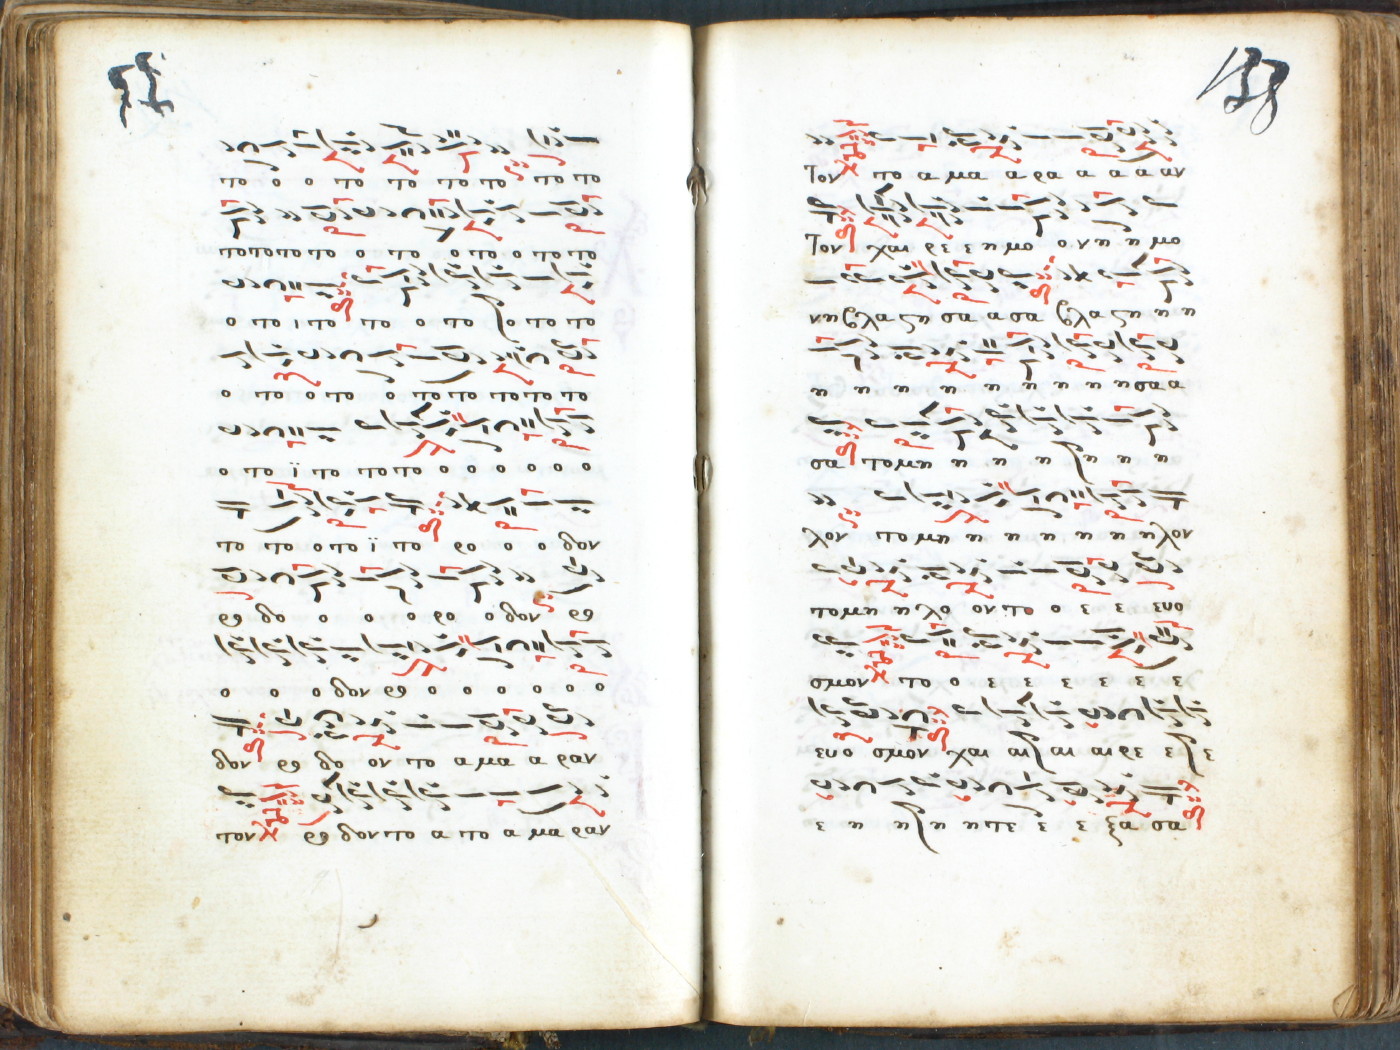 το ο ο το το το το το το
το το το το ο το ο το ο το το
ο το ι το το ο το ο το το
ο το ο το ο το το το το το
ο το ϊ το το το ο ο ο ο ο ο
το το ο το ϊ το ρο ο ο δον
ρο δο ο ο ο ρο ο δον ρο
ο ο ο δον ρο ο ο ο ο ο ο
δον ρο δο ον το α μα α ραν
τον ρο δον το α το α μα ραν
138
Τον το α μα α ρα α α α αν
Τον χαι ρε ε η μο ο νη η μο
νη βλα ςη σα α σα βλα ςη η η
η η η η η η η η η η σα α
σα το μη η η η η η η
λον το μη η η η η η η λον
το μη η λο ον το ο ε ε ευο
σμον το ο ε ε ε ε ε ε
ευο σμον χαι αι αι αι ρε ε ε
ε η η η η τε ε ε ξα σα